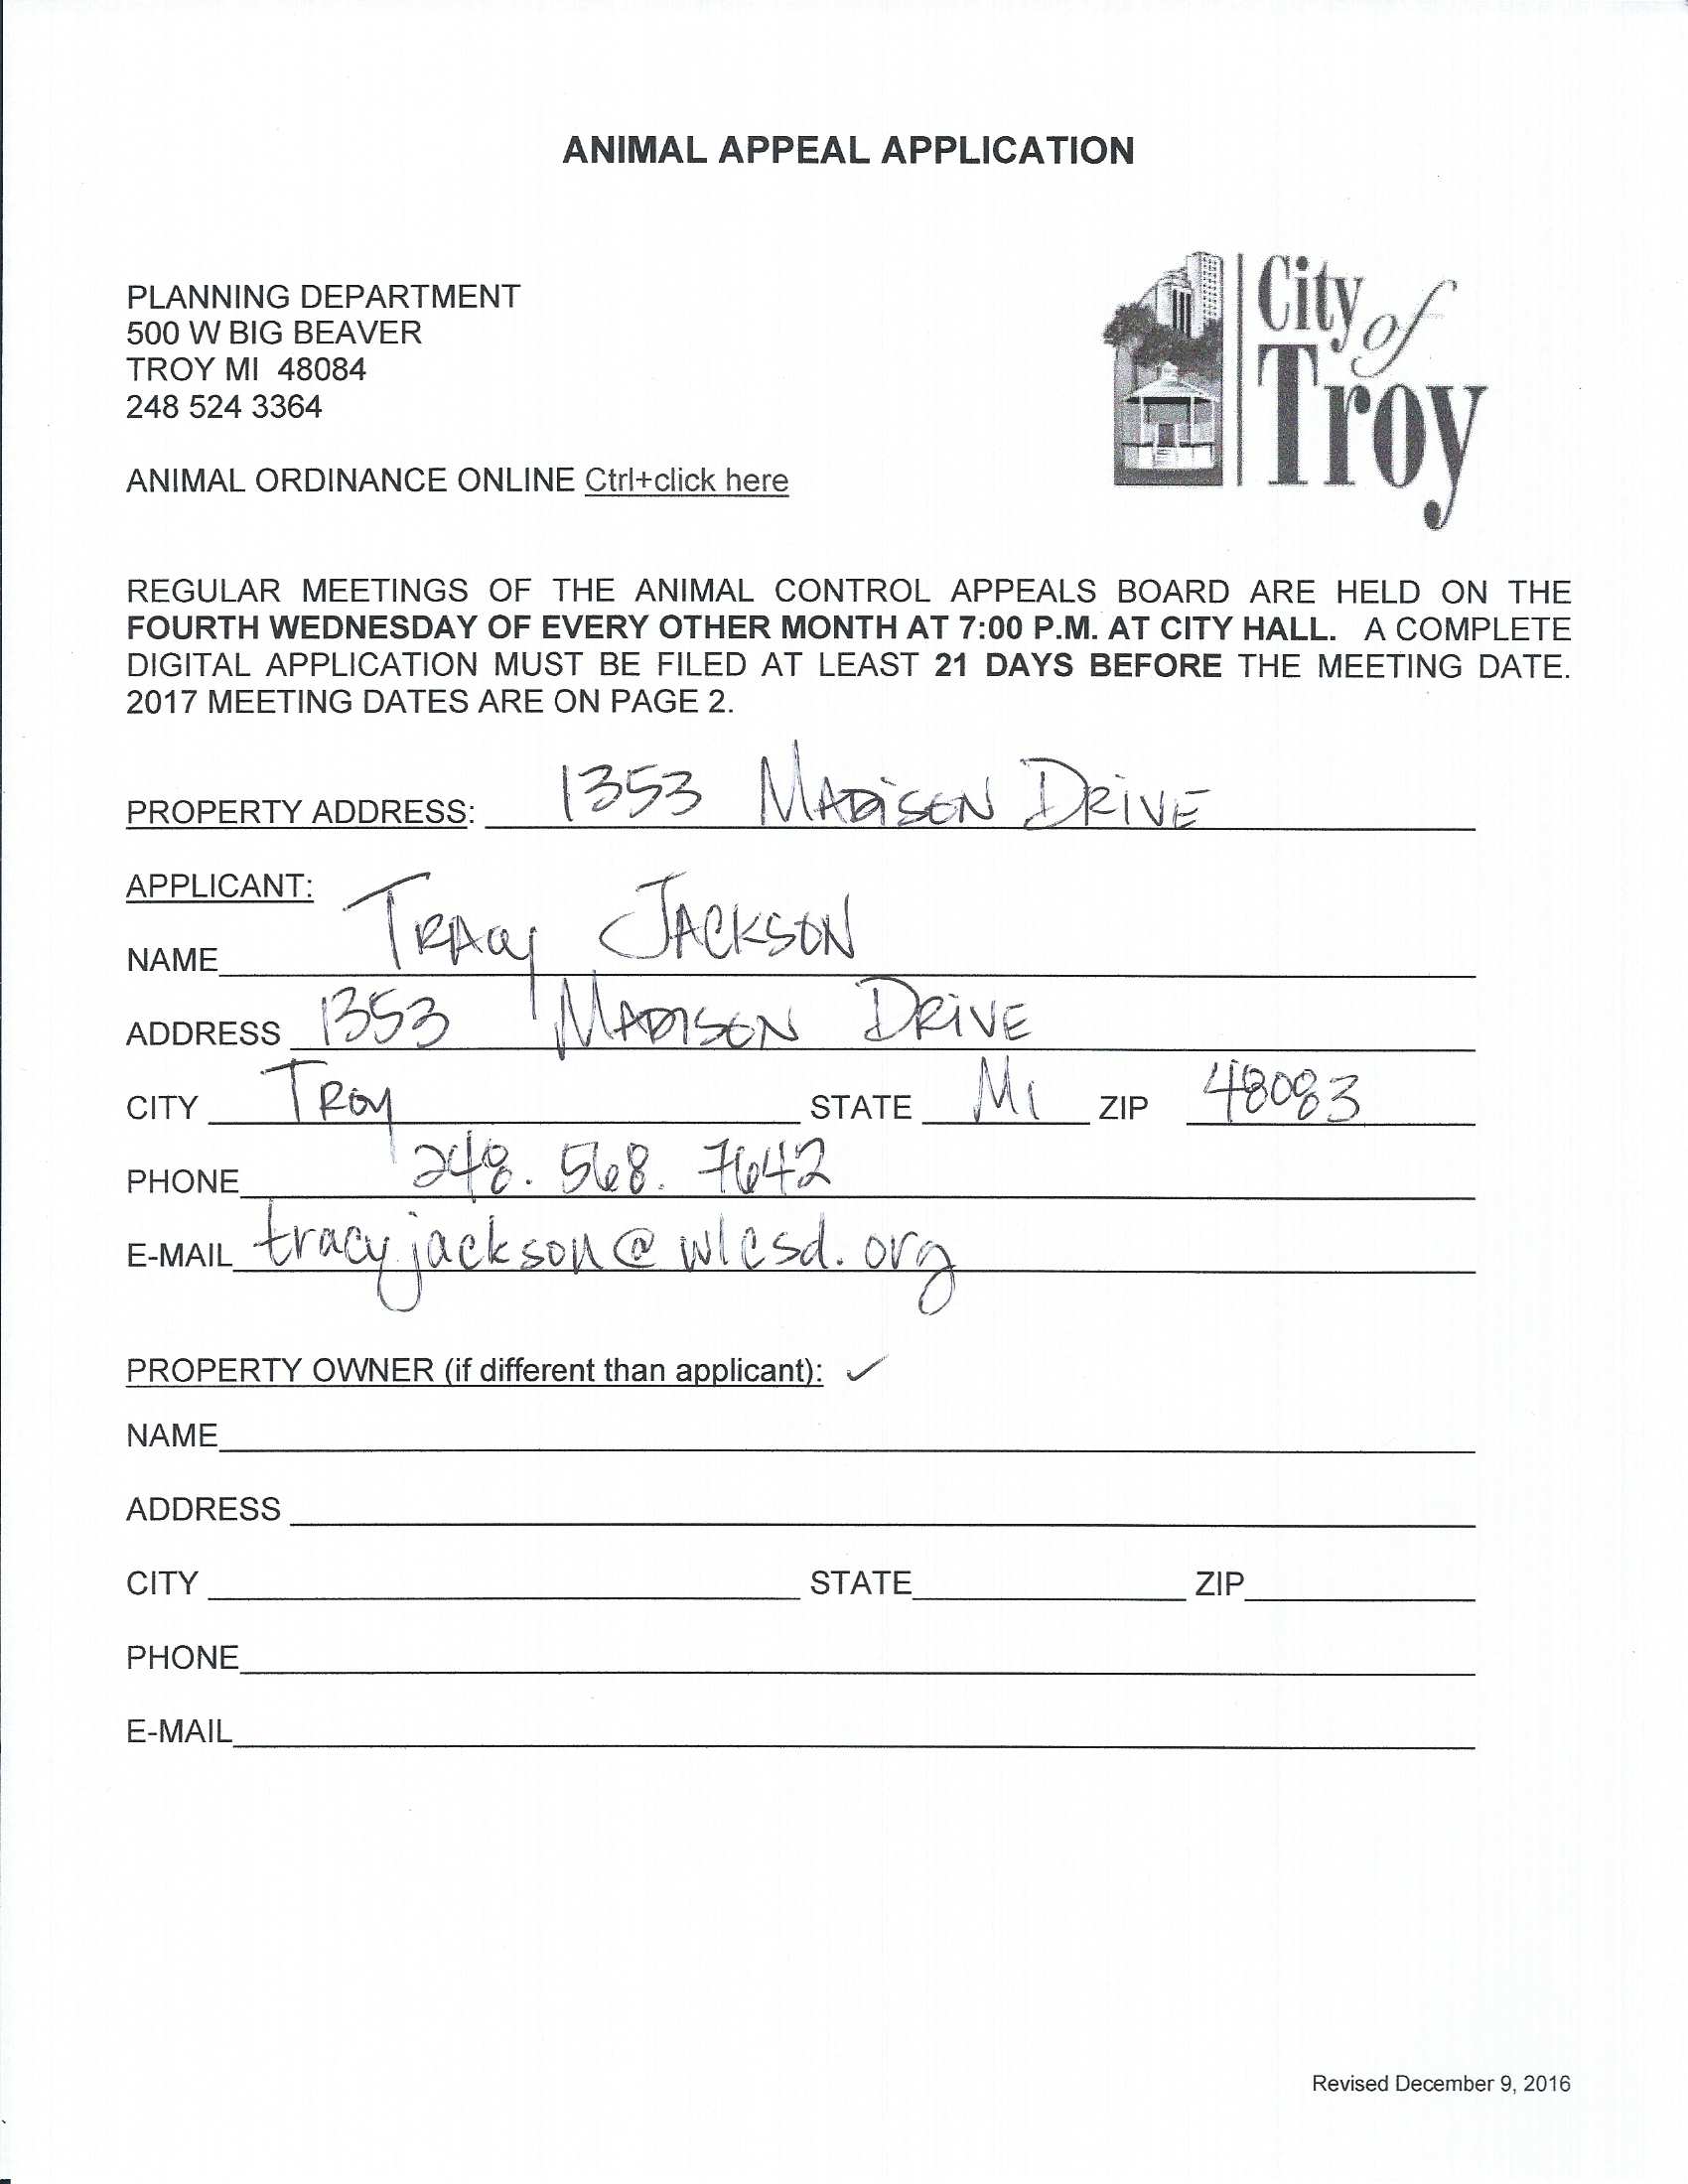 ANIMAL APPEAL APPLICATION
PLANNING DEPARTMENT
500 W BIG BEAVER
TROY MI 48084
248 524 3364
City of
Troy
ANIMAL ORDINANCE ONLINE Ctrl+click here
REGULAR MEETINGS OF THE ANIMAL CONTROL APPEALS BOARD ARE HELD ON THE
FOURTH WEDNESDAY OF EVERY OTHER MONTH AT 7:00 P.M. AT CITY HALL. A COMPLETE
DIGITAL APPLICATION MUST BE FILED AT LEAST 21 DAYS BEFORE THE MEETING DATE.
2017 MEETING DATES ARE ON PAGE 2.
PROPERTY ADDRESS: 1353 MADISON DRIVE
APPLICANT:
NAME TRACY JACKSON
ADDRESS 1353 MADISON DRIVE
CITY TROY STATE MI ZIP 48083
PHONE 248. 568. 7642
E-MAIL tracyjackson@wlcsd.org
PROPERTY OWNER (if different than applicant): ✓
NAME
ADDRESS
CITY STATE ZIP
PHONE
E-MAIL
Revised December 9, 2016